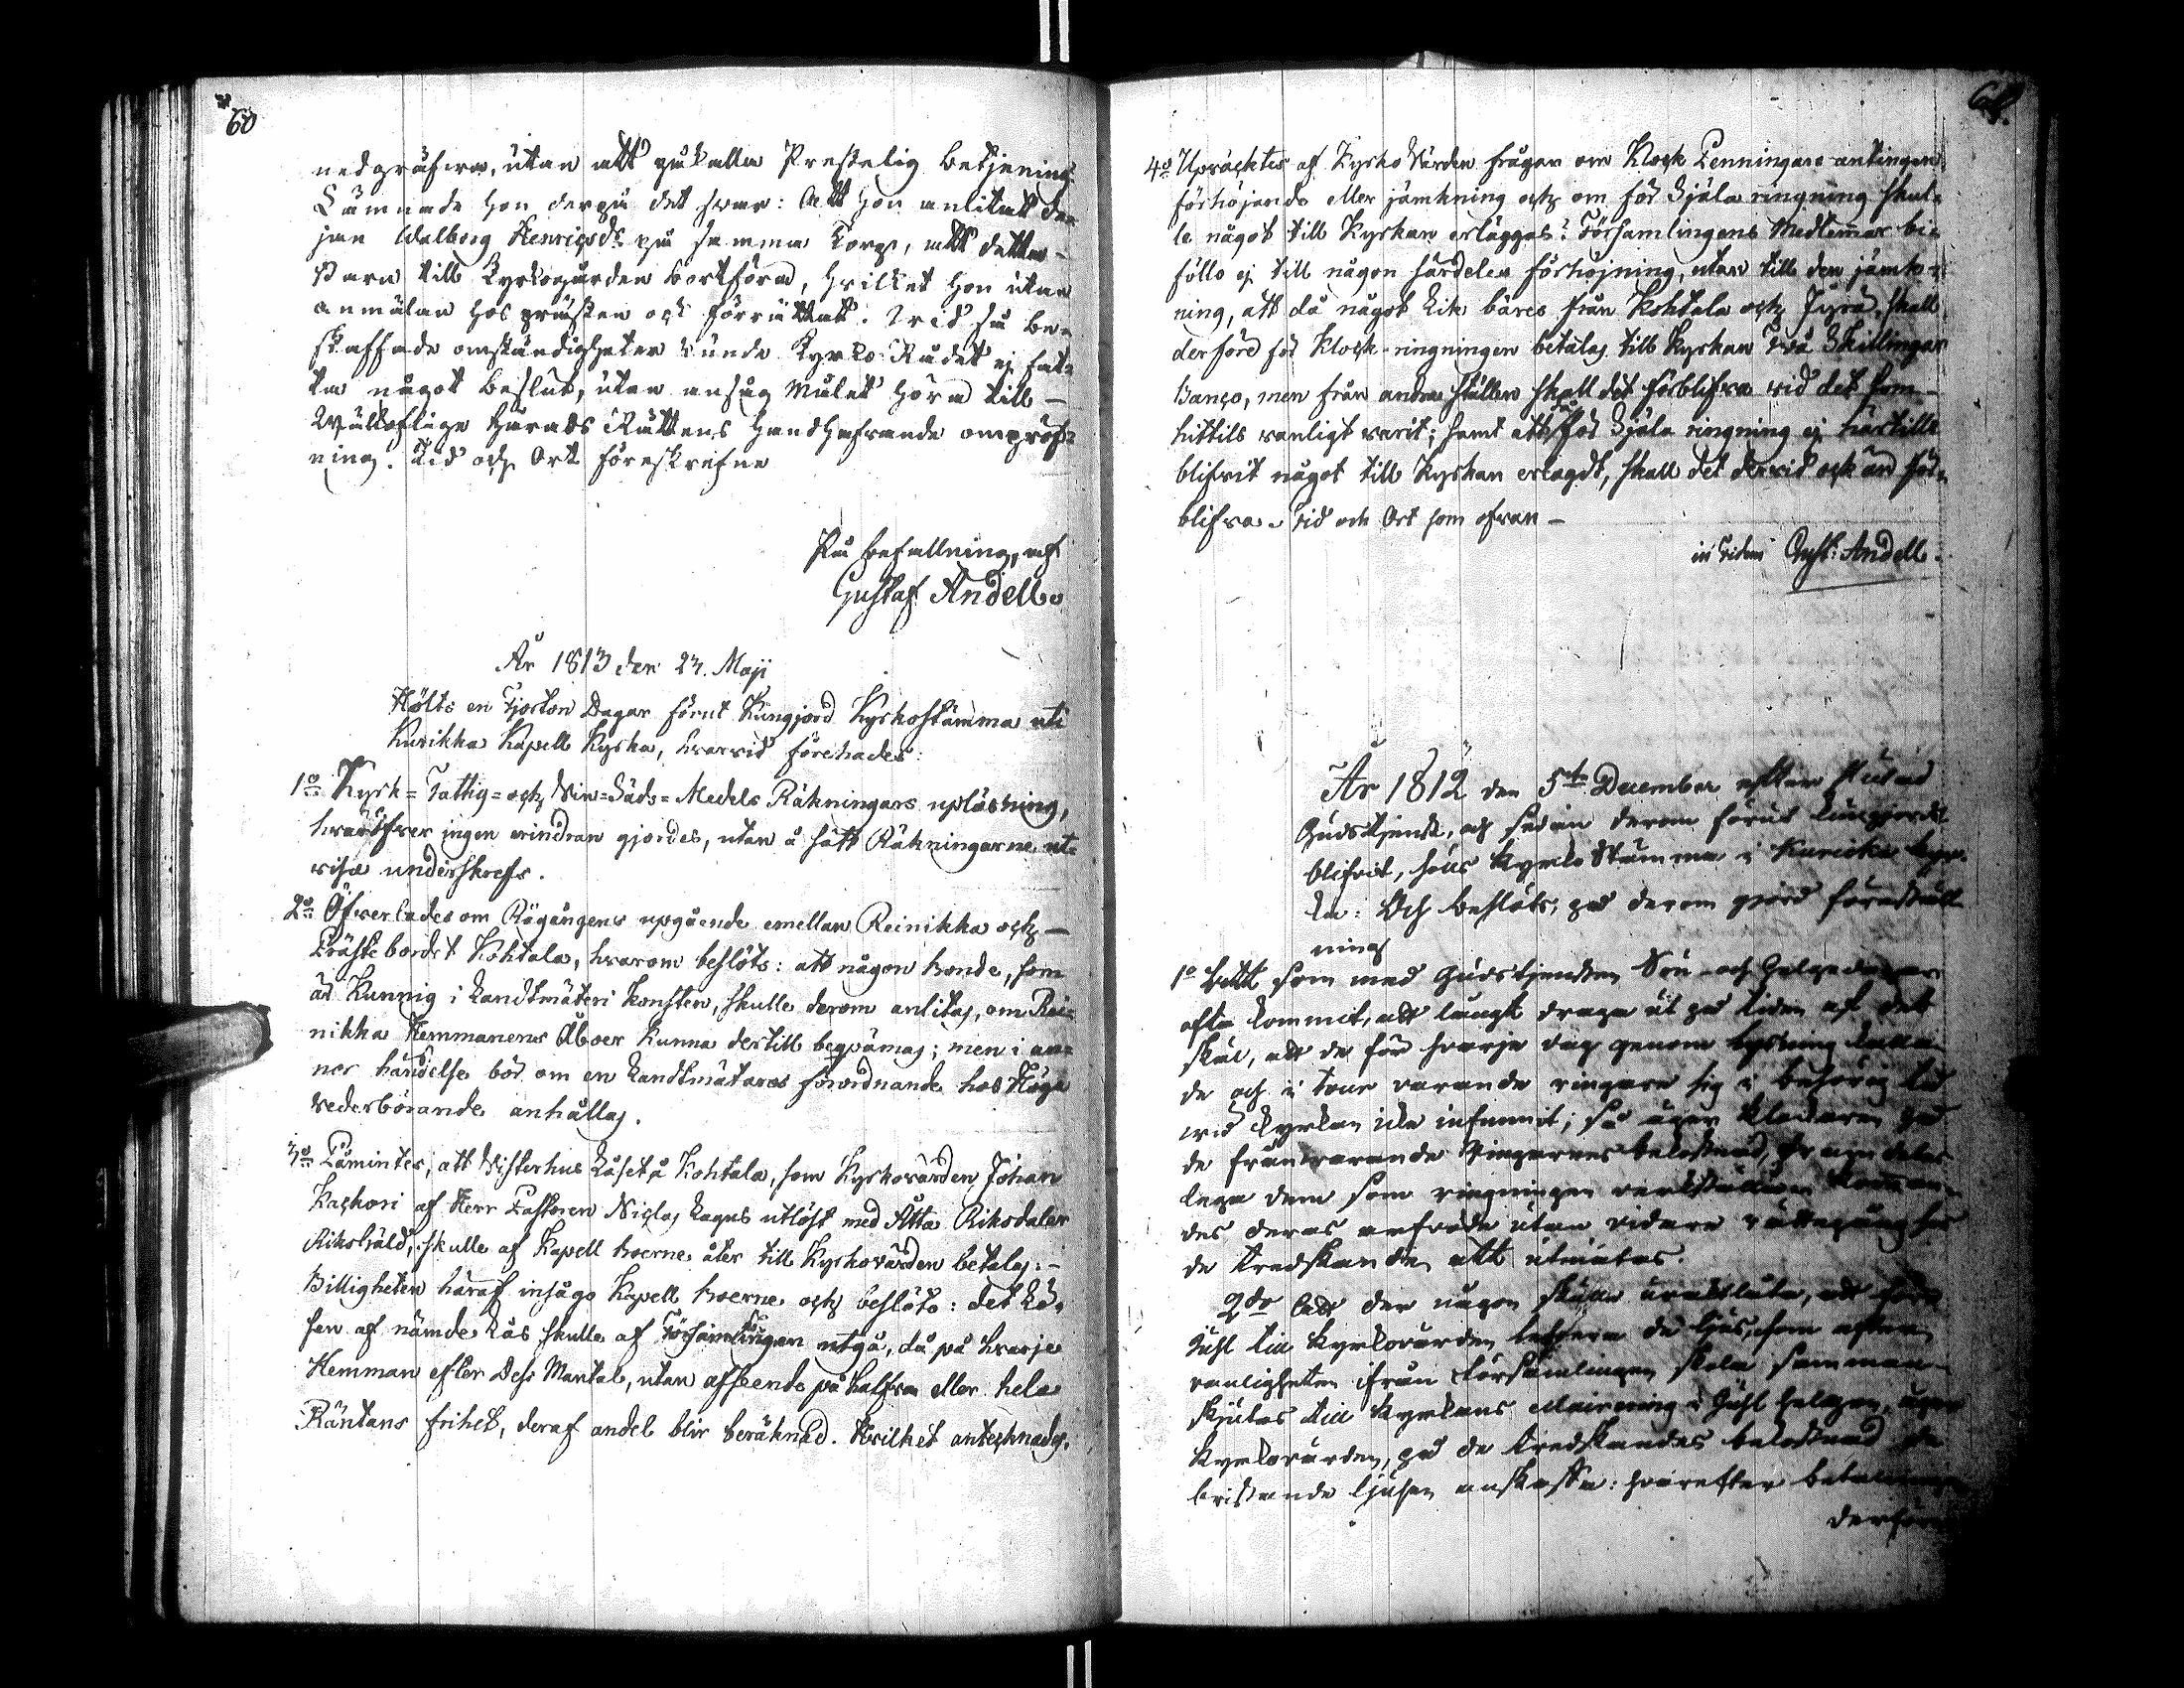 60
nedgräfwa, utan att påkalla Prestelig betjening
Lämnade hon derpå det swar: Att hon anlitat De-
jan Walborg Henricsdr på samma Torp, att detta
barn till Kyrkogården bortföra, hvilket hon utan
anmälan hos presten ock förrättat. Wid så be-
skaffade omständigheter kunde Kyrko-Rådet ej fat-
ta något beslut, utan ansåg målet höra till
Wälloflige Härads Rättens handhafwande ompröf-
ning. Tid och Ort föreskrefne
På befallning, af
Gustaf Andell.
År 1813 den 23. Maji
Hölts en Fjorton Dagar förut Kungjord Kyrkostämma uti
Kurikka Kapell Kyrka, hvarvid förehades:
1o Kyrk- Fattig- och Vin-Säds-Medels Räkningars upläsning,
hvaröfver ingen erindran gjordes, utan å sått Räkningarne ut-
visa underskrefs.
2o Öfverlades om Rågångens upgående emellan Reinikka och
Prästebordet Kohtala, hvarom beslöts: att någon bonde, som
är Kunnig i Landtmäteri konsten, skulle derom anlitas, om Rei-
nikka Hemmanens Åboer kunna dertill beqvämas; men i an-
nor händelse bör om en Landtmätares förordnande hos Höga
Vederbörande anhållas.
3o Påmintes, att Visterhus Låset å Kohtala, som Kyrkovärden Johan
Kackori af Herr Pastoren Niclas Lagus utlöst med Åtta Riksdaler
Riksgäld, skulle af Kapell boerne åter till Kyrkovärden betalas.
Billigheten häraf insågo Kapell boerne och beslöto: det Lö-
sen af nämde Lås skulle af Församlingen utgå, då på hvarje
Hemman efter Dess Mantal, utan afseende på halfva eller hela
Räntans frihet, deraf andel blir beräknad. Hvilket antecknades.
61.
4o Upväcktes af Kyrko Värden frågan om Klock Penningars antingen
förhöjande eller jämkning och om för Själa ringning skul-
le något till Kyrkan erläggas? Församlingens Medlemmar bi-
föllo ej till någon särdeles förhöjning, utan till den jämk-
ning, att då något Lik bäres från Kohtala och Jyrä, skall
derföre för Klock-ringningen betalas till Kyrkan två Skillingar
Banco, men från andra ställen skall det förblifva vid det som
hittils vanligt varit; samt att för Själa ringning ej härtills
blifvit något till Kyrkan erlagdt, skall det dervid ock än för-
blifva. Tid och Ort som ofvan
in fidem Gust: Andell.
År 1812 den 5te December efter slutad
Gudstjenst, och sedan derom förut kungjordt
blifvit, höls Kyrko Stämma i Kurikka Kyr-
ka: Och beslöts, på derom gjord föreställ-
ning
1o Att som med Gudstjensten Sön- och Helgedagar
ofta kommit, att långt draga ut på tiden af det
skäl, att de för hvarje dag genom lysning kalla-
de och i tour varande ringare sig i behörig tid
vid kyrkan icke infunnit; så äger klockaren på
de frånvarande Ringarnes bekostnad,
lega dem som ringningen verkställa
des deras arfvode utan vidare rättegång hos
de tredskande att utmätas.
2do Att der någon skulle underlåta, att före
Juhl till Kyrkovärden lefverera de ljus, som efter
vanligheten ifrån församlingen skola samman-
skjutas till Kyrkans i Juhl helgen, äger
Kyrkovärden, på de tredskandes bekostnad de
bristande ljusen anskaffa: hvarefter betalningen
derföre